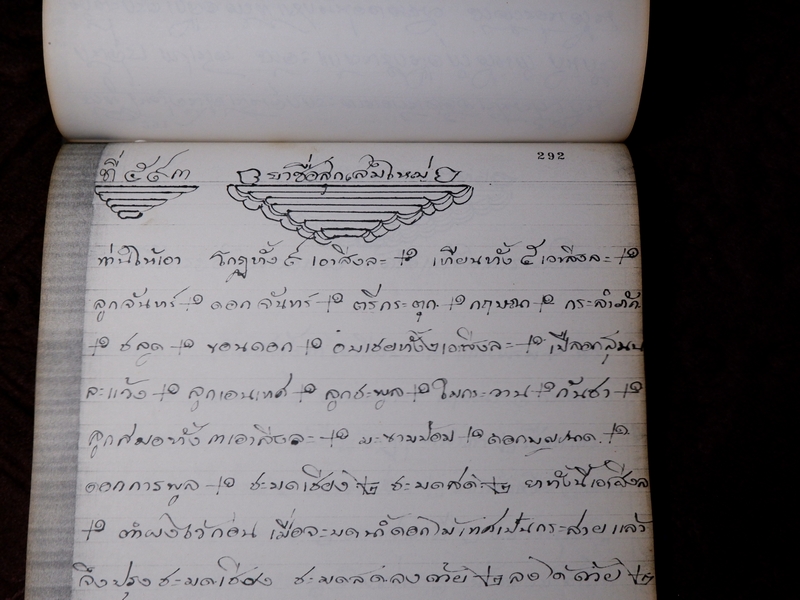 292
ที่ ๕๙๓ ยาชื่อสุกเส้มใหม่
ท่านให้เอา โกฏทั้ง ๙ เอาสิ่งละ +๑ เทียนทั้ง ๕ เอาสิ่งละ +๑
ลูกจันทร์ +๑ ดอกจันทร์ +๑ ตรีกระตุก +๑ กฤษณา +๑ กระลำภัก
+๑ ชลูด +๑ ขอนดอก +๑ อบเชยทั้ง เอาสิ่งละ +๑ เปลือกสมุน
ละแว้ง +๑ ลูกเอนเทศ +๑ ลูกชะพูล +๑ ใบกระวาน +๑ กันชา +๑
ลูกสมอทั้ง ๓ เอาสิ่งละ +๑ มะขามป้อม +๑ ดอก +๑
ดอกการพูล +๑ ชะมดเชียง ชะมดสด ยาทั้งนี้เอาสิ่งละ
+๑ ตำผงไว้ก่อน เมื่อจะบดน้ำดอกไม้เทศเป็นกระสาย แล้ว
จึงปรุงชะมดเชียง ชะมดสด ลงด้วย ลงได้ด้วย